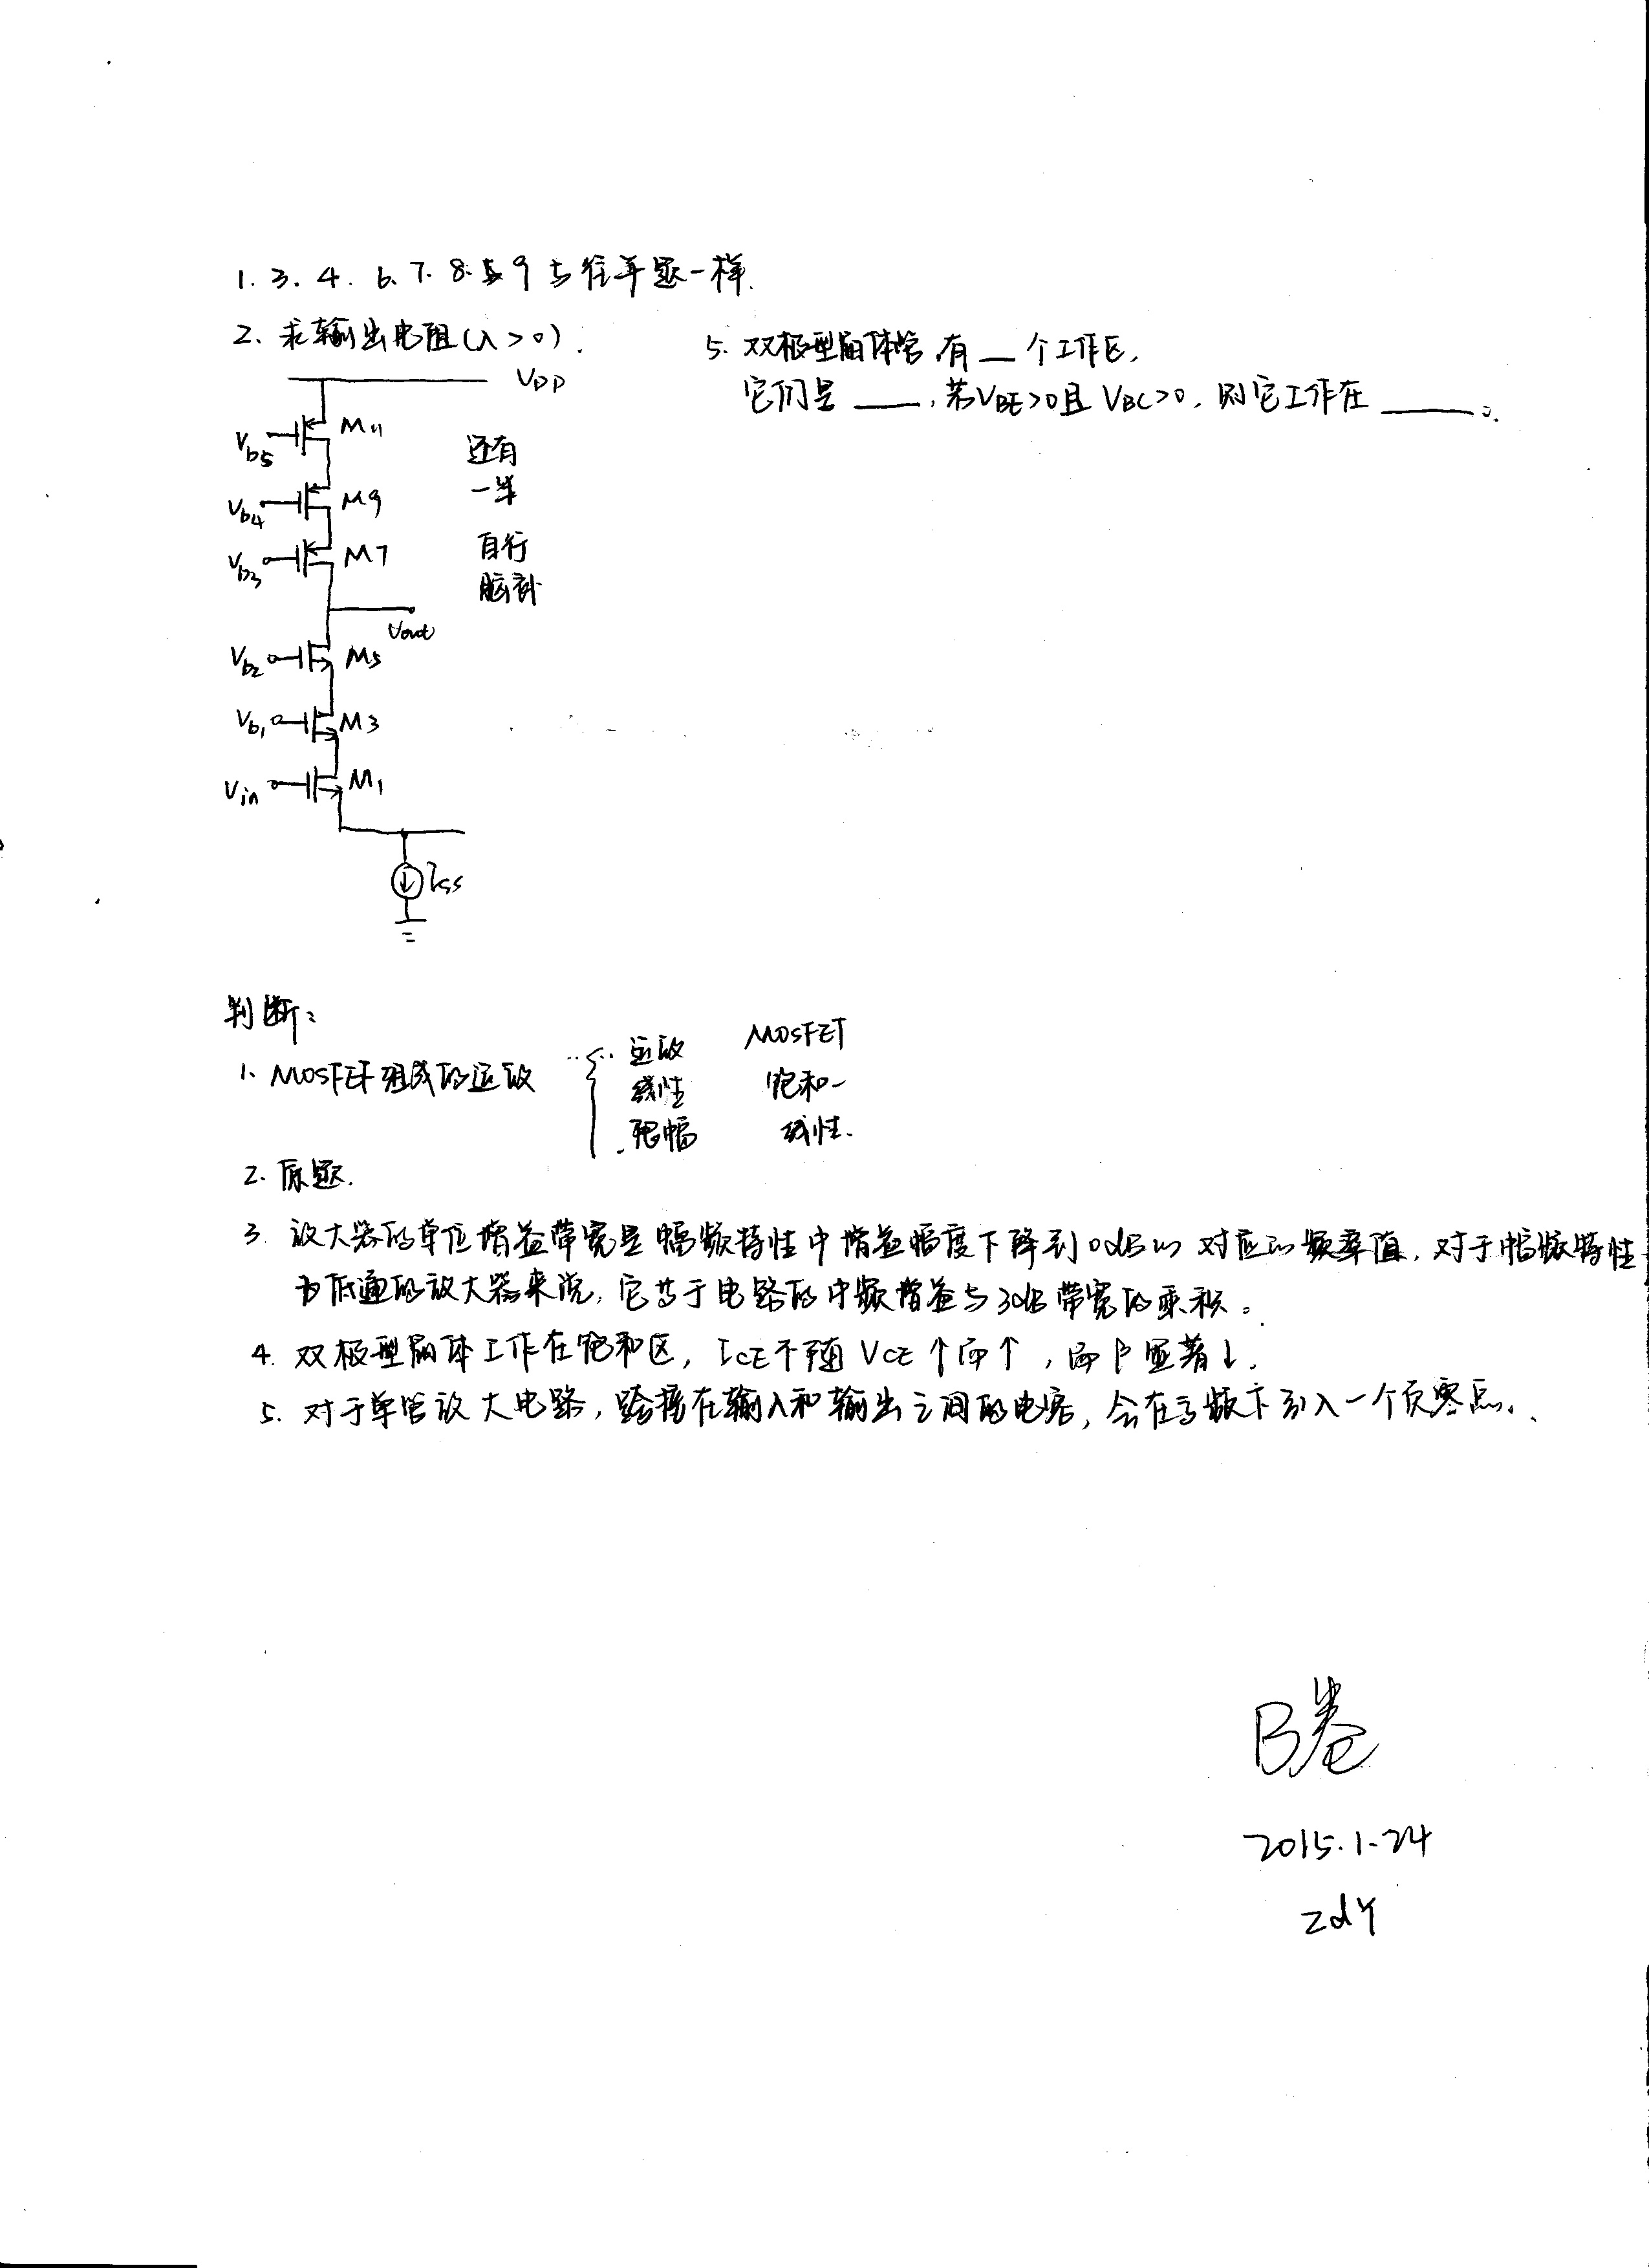 1. 3. 4. 6. 7. 8. 9 与往年题一样.
2. 求输出电阻(λ>0).
VDD
M11
Vb5
M9
Vb4
M7
Vb3
Vout
M5
Vb2
M3
Vb1
M1
Vin
Iss
还有
一半
自行
脑补
5. 双极型晶体管有 __ 个工作区,
它们是 ___, 若VBE>0且 VBC>0, 则它工作在 ____。
判断:
1. MOSFET组成的运放
运放 MOSFET
线性 饱和-
限幅 线性.
2. 原题.
3. 放大器的单位增益带宽是幅频特性中增益幅度下降到0dB时对应的频率值, 对于幅频特性
为低通的放大器来说, 它等于电路的中频增益与3dB带宽的乘积。
4. 双极型晶体工作在饱和区, ICE不随 VCE↑而↑, 而β显著↓.
5. 对于单管放大电路, 跨接在输入和输出之间的电容, 会在高频下引入一个负零点.
B卷
2015.1.24
zdy